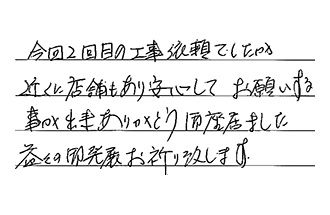 今回2回目の工事依頼でしたが
近くに店舗もあり安心して お願いする
事が出来ありがとう御座居ました
益々の御発展お祈り致します。